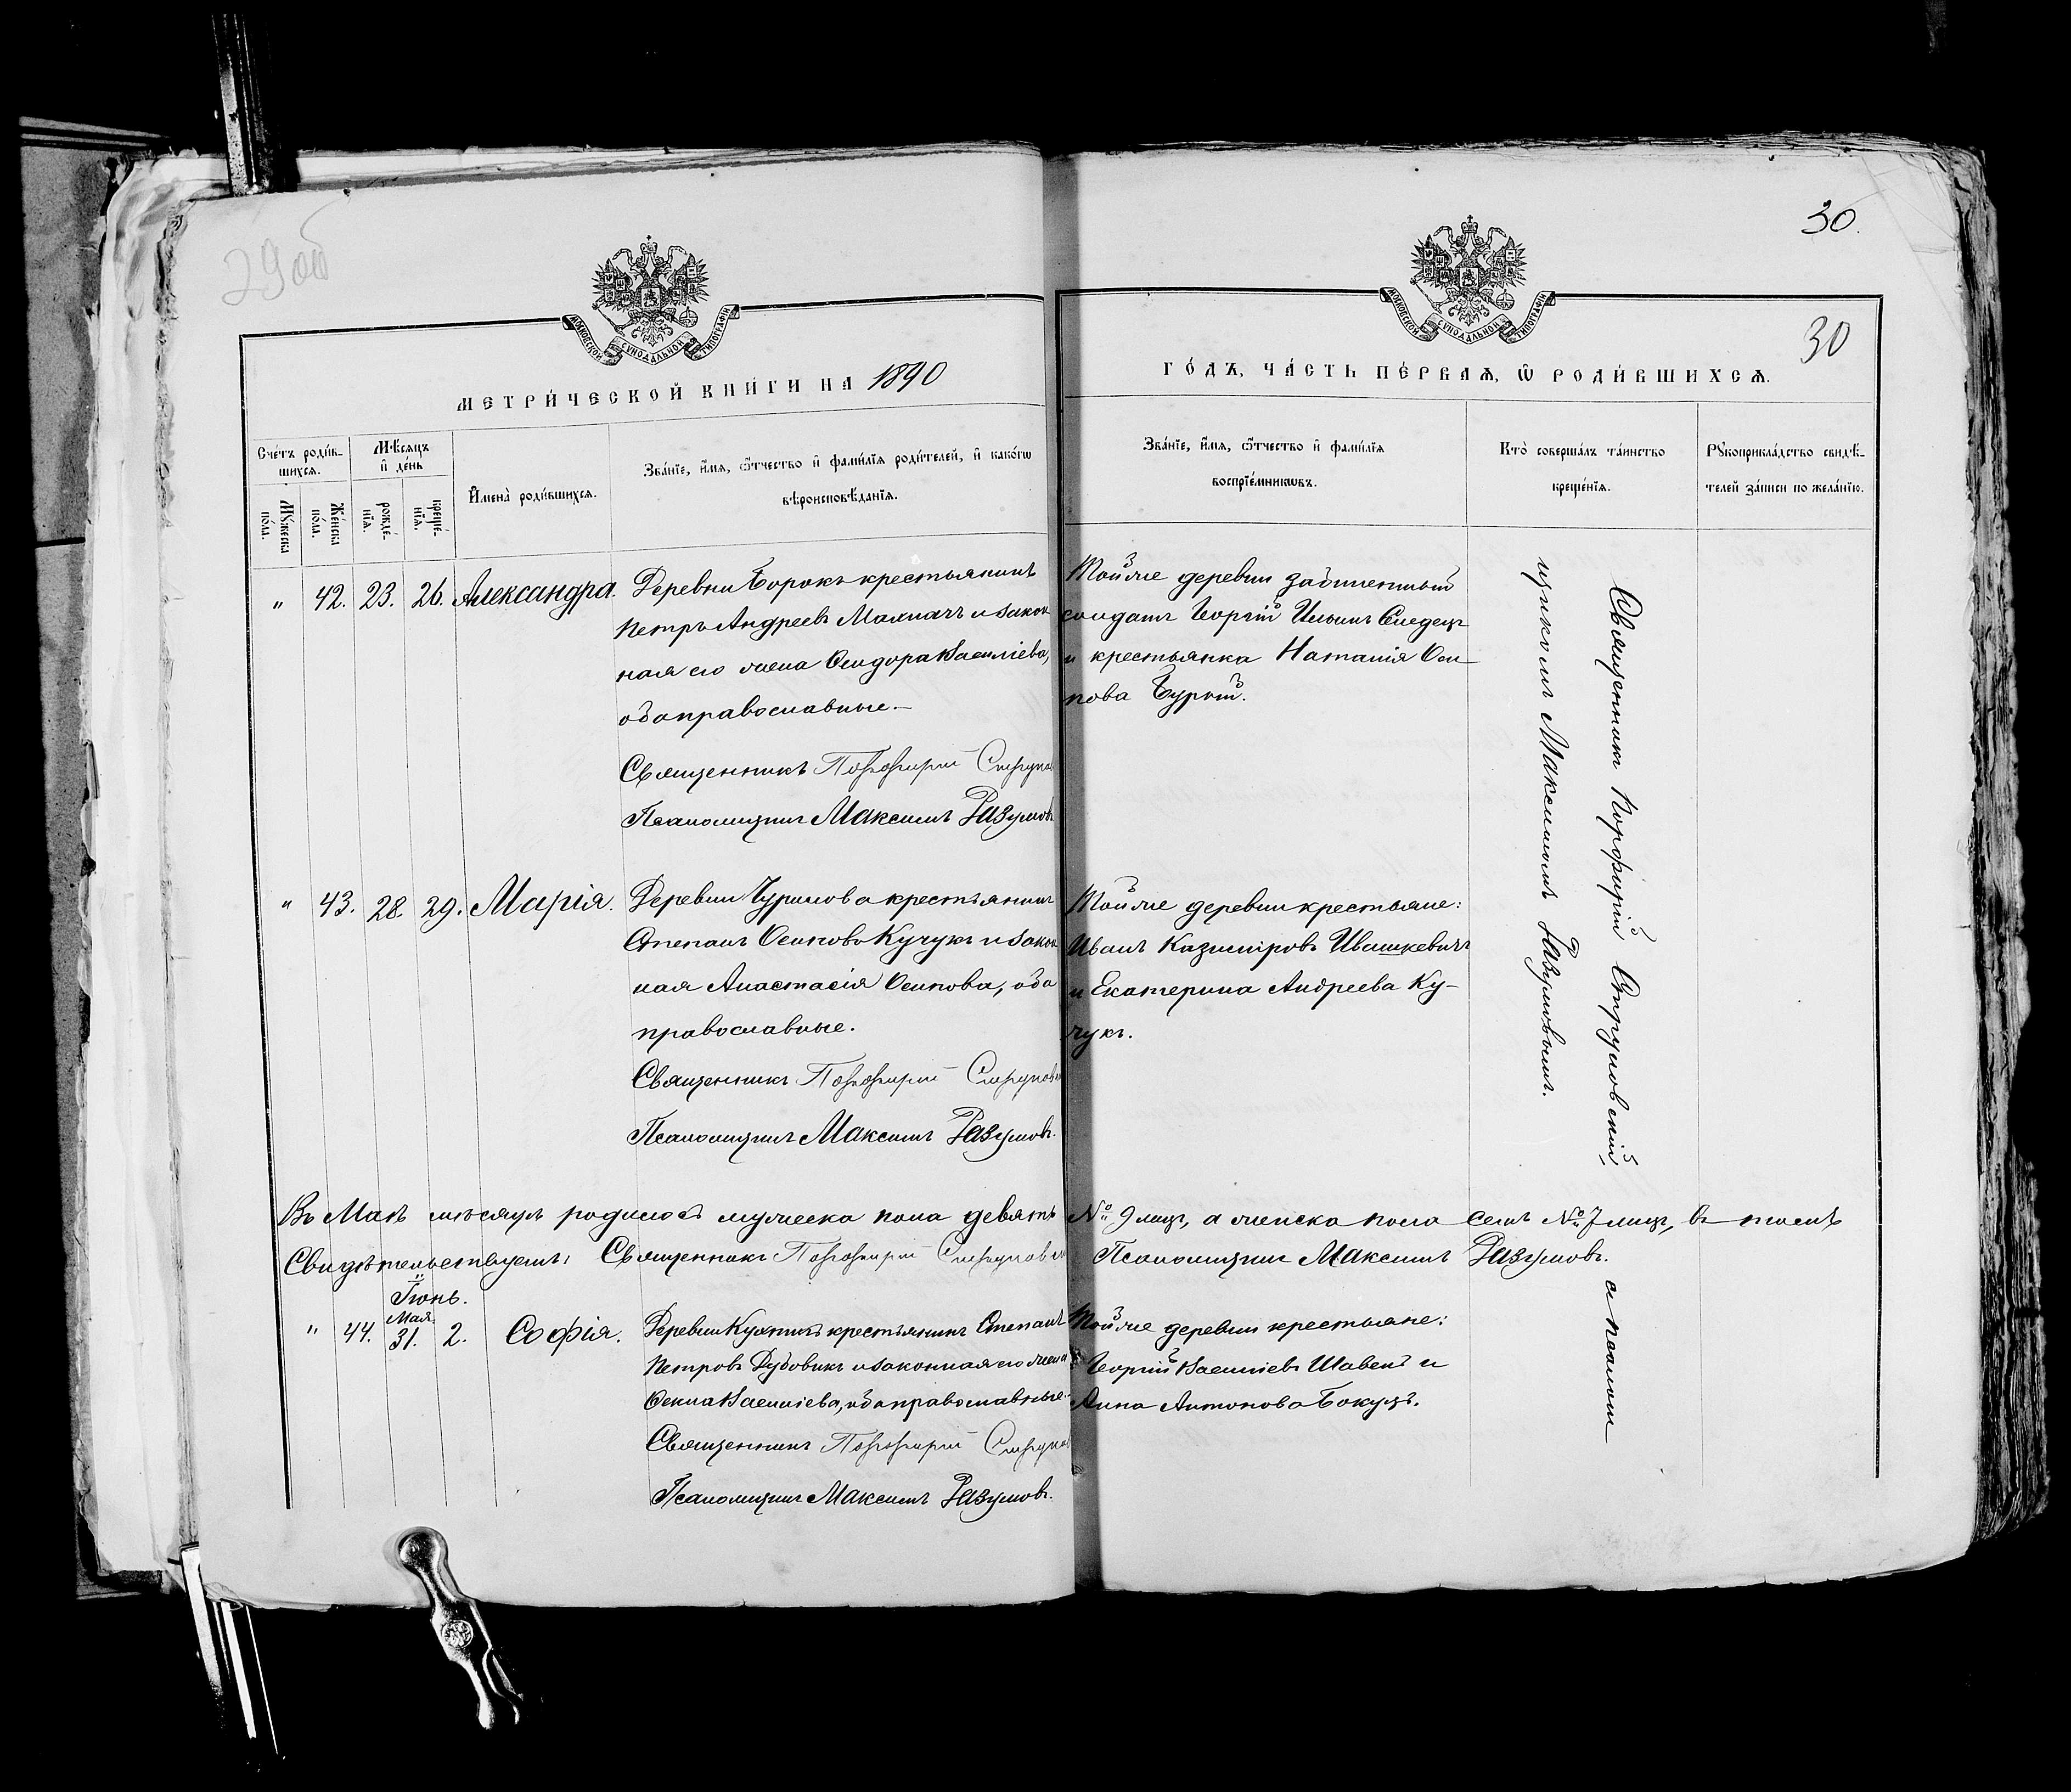 29об
30.
30
МОСКОВСКОЙ СѴНОДАЛЬНОЙ ТИПОГРАФІИ
МОСКОВСКОЙ СѴНОДАЛЬНОЙ ТИПОГРАФІИ
МЕТРИ́ЧЕСКОЙ КНИ́ГИ НА 1890
ГО́ДЪ, ЧА́СТЬ ПЕ́РВАѦ, Ѿ РОДИ́ВШИХСѦ.
Сче́тъ роди́в-
шихсѧ.
Мꙋ́жеска по́ла.
Же́нска по́ла.
Мѣ́сѧцъ и҆ де́нь
рожде́-нїѧ.
креще́-нїѧ.
И҆мена̀ роди́вшихсѧ.
Зва́нїе, и҆́мѧ, ѻ҆́тчество и҆ фами́лїѧ роди́телей, и҆ како́гѡ
вѣроисповѣ́данїѧ.
Зва́нїе, и҆́мѧ, ѻ҆́тчество и҆ фами́лїѧ
воспрїе́мникѡвъ.
Кто̀ соверша́лъ та́инство
креще́нїѧ.
Рꙋкоприкла́дство свидѣ́-
телей за́писи по жела́нїю.
" 42. 23. 26. Александра.
Деревни Борокъ крестьянинъ
Петръ Андреевъ Махначъ и закон
ная его жена Федора Василіева,
оба православные.—
Священникъ Порфирій
Псаломщикъ Максимъ Разумовъ
Тойже деревни
солдатъ Георгій Ильинъ Следецъ
и крестьянка Наталія Оси-
пова
Священникъ Порфирій Струповскій, с псалом
щикомъ Максимомъ Разумовымъ.
" 43. 28. 29. Марія.
Деревни Чурилово крестьянинъ
Степанъ Осиповъ Кучукъ и закон
ная Анастасія Осипова, оба
православные.
Священникъ Порфирій
Псаломщикъ Максимъ Разумовъ.
Тойже деревни крестьяне:
Иванъ Казиміровъ Ивашкевичъ
и Екатерина Андреева Ку-
чукъ.
Въ Маѣ мѣсяцѣ родилось мужеска пола девять № 9 лицъ, а женска пола семь № 7 лицъ, в томъ
Свидѣтельствуемъ: Священникъ Порфирій Псаломщикъ Максимъ Разумовъ.
Іюнь.
Мая.
" 44. 31. 2. Софія.
Деревни крестьянинъ Степанъ
Петровъ Дубовикъ и законная его жена
Фекла Василіева, оба православные.
Священникъ Порфирій
Псаломщикъ Максимъ Разумовъ.
Тойже деревни крестьяне:
Георгій Василіевъ Шавель и
Анна Антонова Бокуцъ.